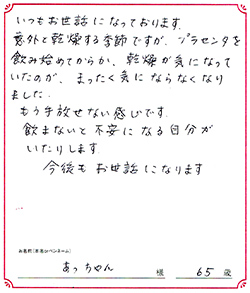 いつもお世話になっております.
意外と乾燥する季節ですが、プラセンタを
飲み始めてからか、乾燥が気になって
いたのが、まったく気にならなくなり
ました.
もう手放せない感じです.
飲まないと不安になる自分が
いたりします.
今後もお世話になります
お名前(本名orペンネーム)
あっちゃん 様 65 歳